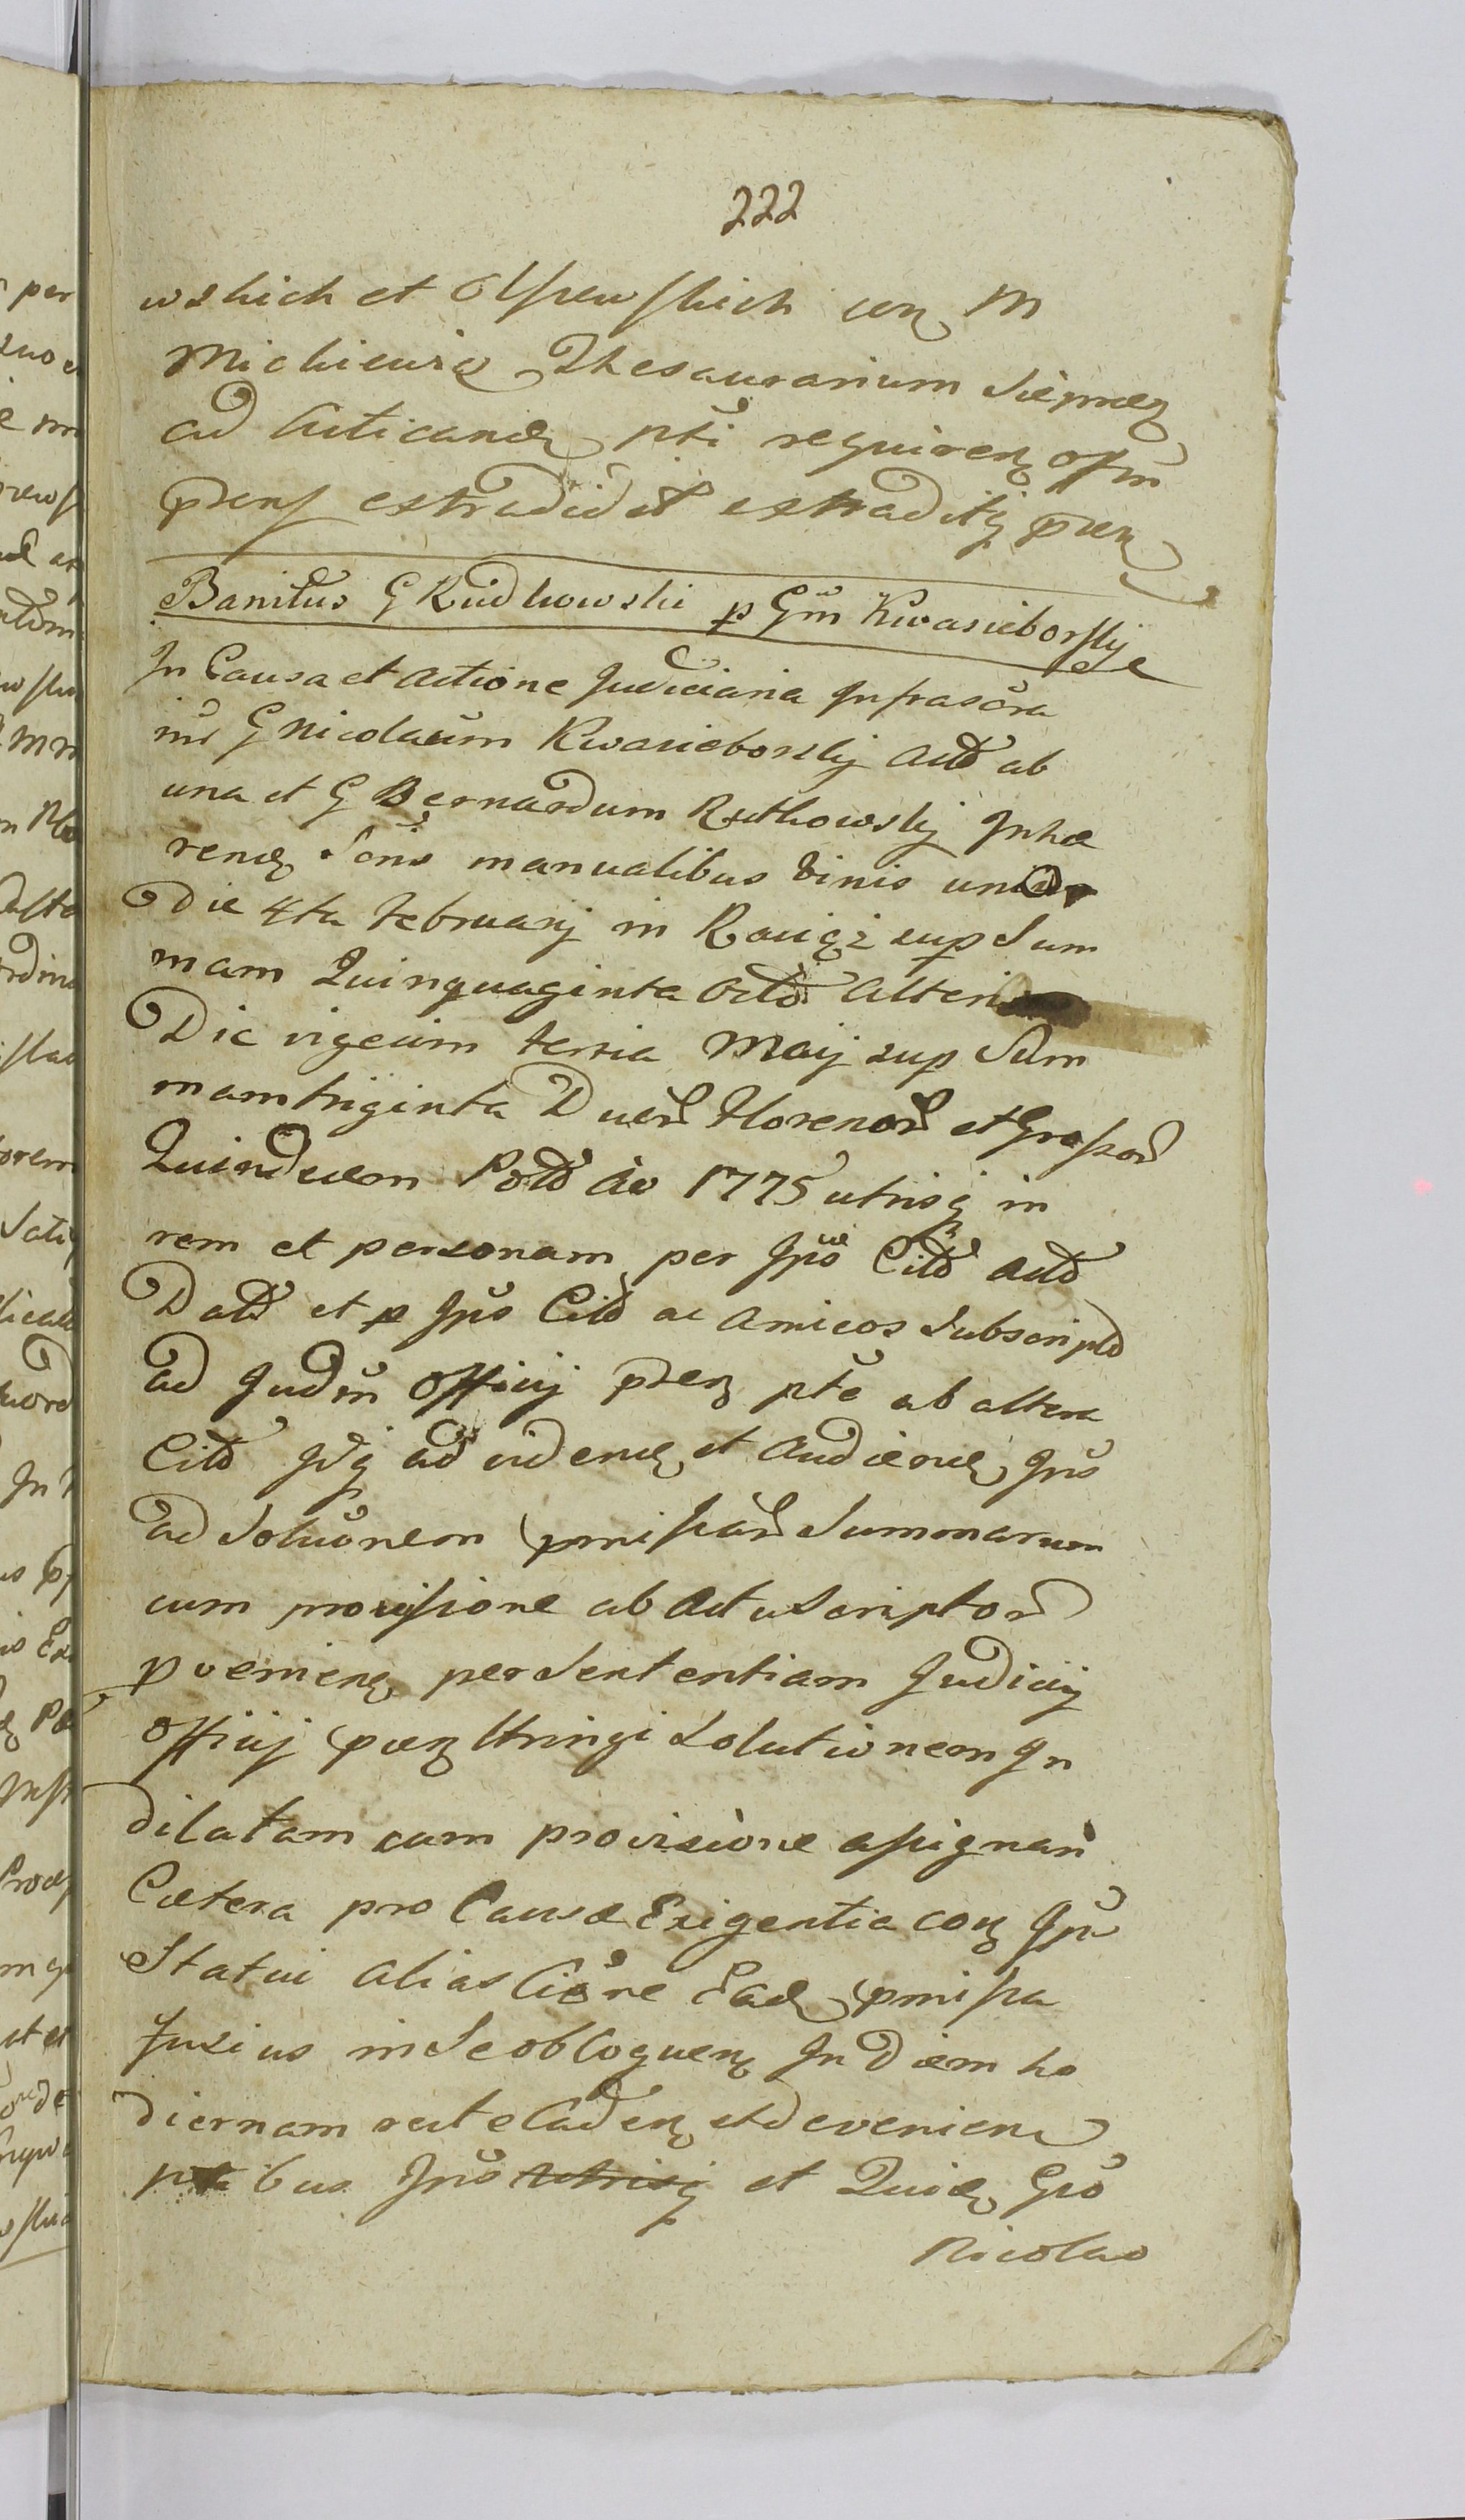 222
wskich et Olszewskich con M
Michieura Thesaurarium
ad Acticand pti requiren offm
prens extradidit extraditq pren
Banitus G Rudkowski p Gm Kwasieborskj
In Causa et Actione Judiciaria Infrascra
int G Nicolaum Kwasieborskj Act ab
una et G Bernardum Rutkowskj Inhæ
rend Scris manualibus binis
Die 4ta Februarij in sup Sum
mam Quinquaginta Octo Alteri
Die vigesim tertia Maij sup Sum
mam triginta Duor Florenor et Grossor
Quindecem Pold Ao 1775 utrisq in
rem et personam per Ips Citt Actt
Datt et p Ips Citt ac Amicos Subscriptt
ad Judm Officij pren pte ab altera
Citt Idq ad vidend et Audiend Ips
ad Solutionem pmissar Summarum
cum provisione ab Actu Scriptor
pvenien per Sententiam Judicij
Officij pren stringi Solutionem In
dilatam cum provisione assignari
Cætera pro Causæ Exigentia con Ips
Statui alias Ciõne Ead pmissa
fusius in Se obloquen In Diem ho
diernam recte Caden et devenien
ptibus Ips utrisq et Quid Gso
Nicolao